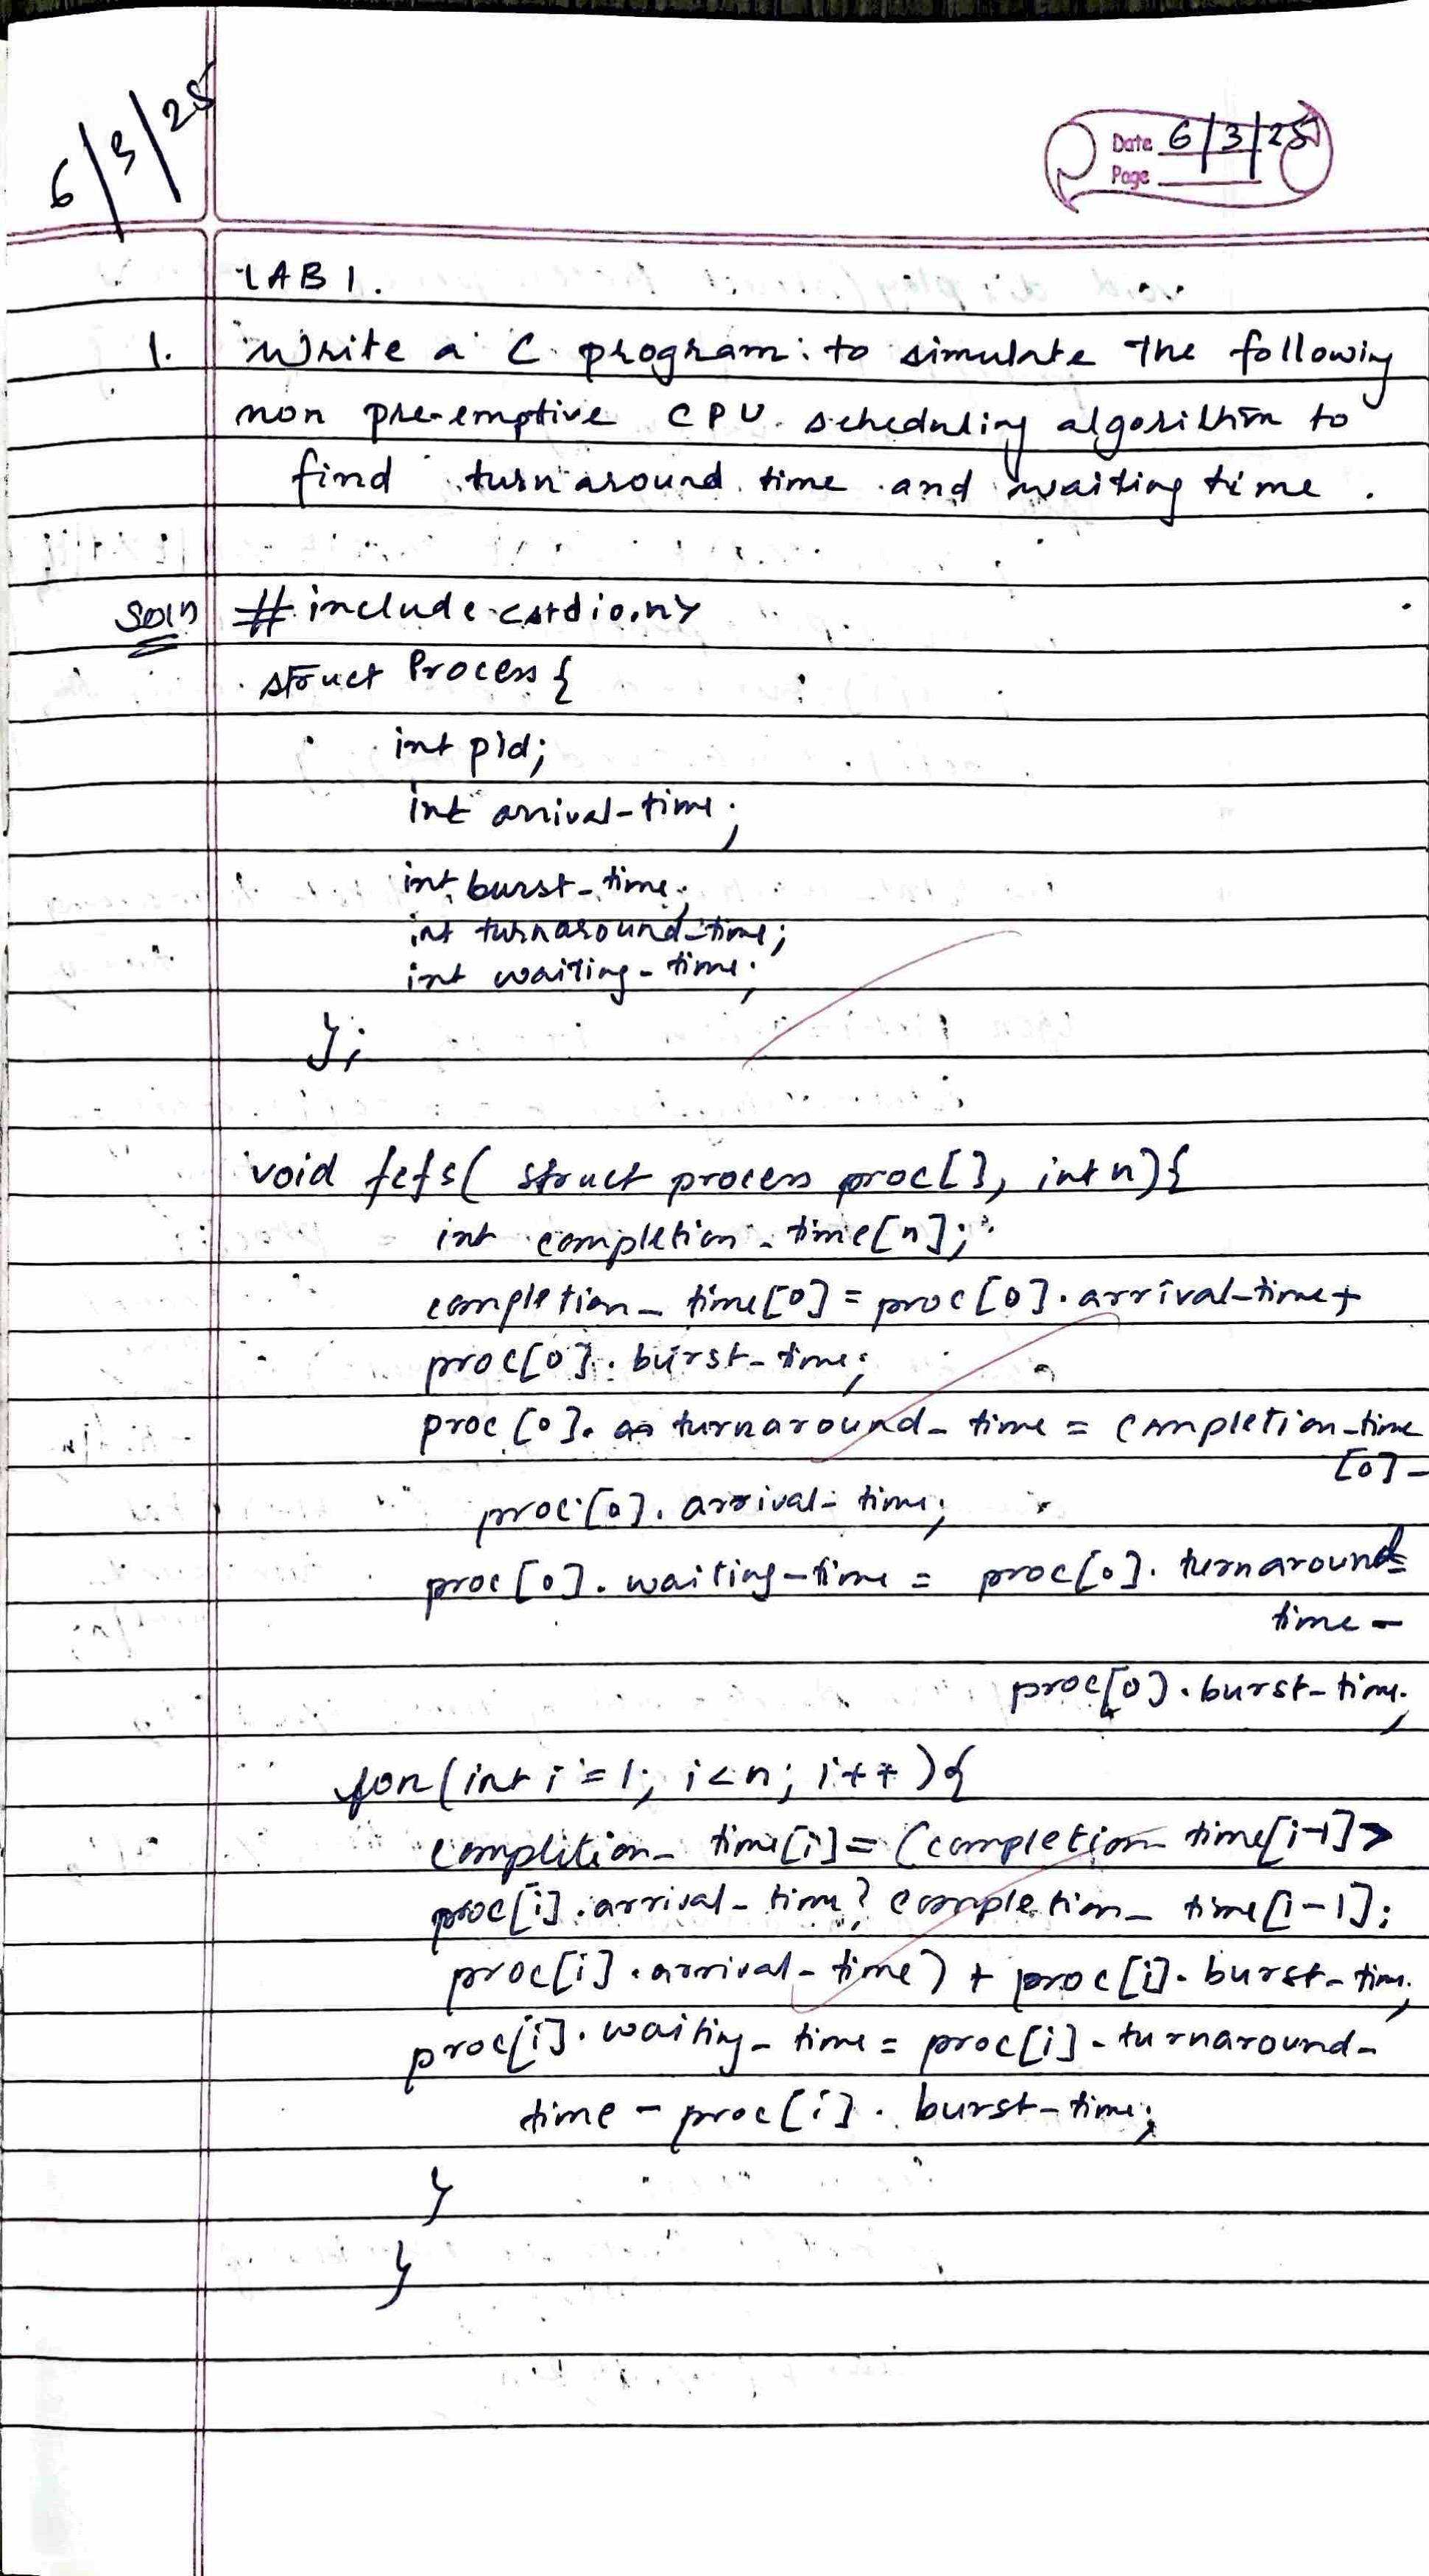 6/3/25
Date 6/3/25
Page
LAB 1.
1. Write a C program to simulate the following
non pre-emptive CPU scheduling algorithm to
find turnaround time and waiting time.
Soln #include <stdio.h>
struct Process {
int pid;
int arrival_time;
int burst_time;
int turnaround_time;
int waiting_time;
};
void fcfs( struct process proc[], int n){
int completion_time[n];
completion_time[0] = proc[0].arrival_time +
proc[0].burst_time;
proc[0]. turnaround_time = completion_time
[0] -
proc[0].arrival_time;
proc[0].waiting_time = proc[0].turnaround_
time -
proc[0].burst_time;
for(int i=1; i<n; i++){
complition_time[i] = (completion_time[i-1] >
proc[i].arrival_time? completion_time[i-1]:
proc[i].arrival_time) + proc[i].burst_time;
proc[i].waiting_time = proc[i].turnaround_
time - proc[i].burst_time;
}
}